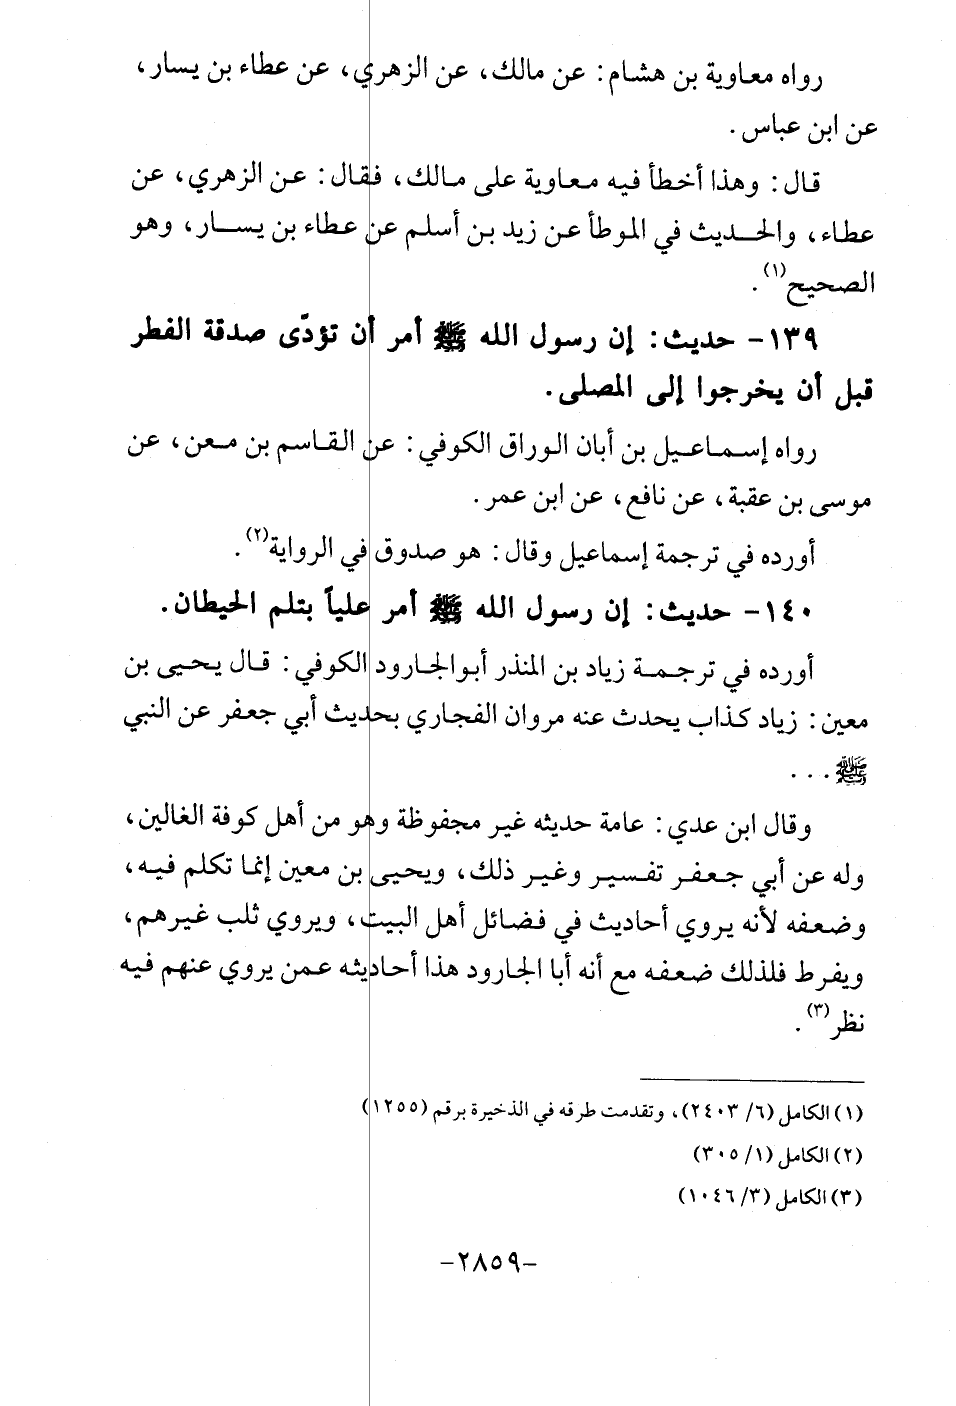 رواه معاوية بن هشام: عن مالك، عن الزهري، عن عطاء بن يسار،
عن ابن عباس.
قال: وهذا أخطأ فيه معاوية على مالك، فقال: عن الزهري، عن
عطاء، والحديث في الموطأ عن زيد بن أسلم عن عطاء بن يسار، وهو
الصحيح(١).
١٣٩- حديث: إن رسول الله ﷺ أمر أن تؤدّى صدقة الفطر
قبل أن يخرجوا إلى المصلى.
رواه إسماعيل بن أبان الوراق الكوفي: عن القاسم بن معن، عن
موسى بن عقبة، عن نافع، عن ابن عمر.
أورده في ترجمة إسماعيل وقال: هو صدوق في الرواية(٢).
١٤٠- حديث: إن رسول الله ﷺ أمر علياً بتلم الحيطان.
أورده في ترجمة زياد بن المنذر أبوالجارود الكوفي: قال يحيى بن
معين: زياد كذاب يحدث عنه مروان الفجاري بحديث أبي جعفر عن النبي
ﷺ...
وقال ابن عدي: عامة حديثه غير محفوظة وهو من أهل كوفة الغالين،
وله عن أبي جعفر تفسير وغير ذلك، ويحيى بن معين إنما تكلم فيه،
وضعفه لأنه يروي أحاديث في فضائل أهل البيت، ويروي ثلب غيرهم،
ويفرط فلذلك ضعفه مع أنه أبا الجارود هذا أحاديثه عمن يروي عنهم فيه
نظر(٣).
(١) الكامل (٦/ ٢٤٠٣)، وتقدمت طرقه في الذخيرة برقم (١٢٥٥)
(٢) الكامل (١/ ٣٠٥)
(٣) الكامل (٣/ ١٠٤٦)
-٢٨٥٩-